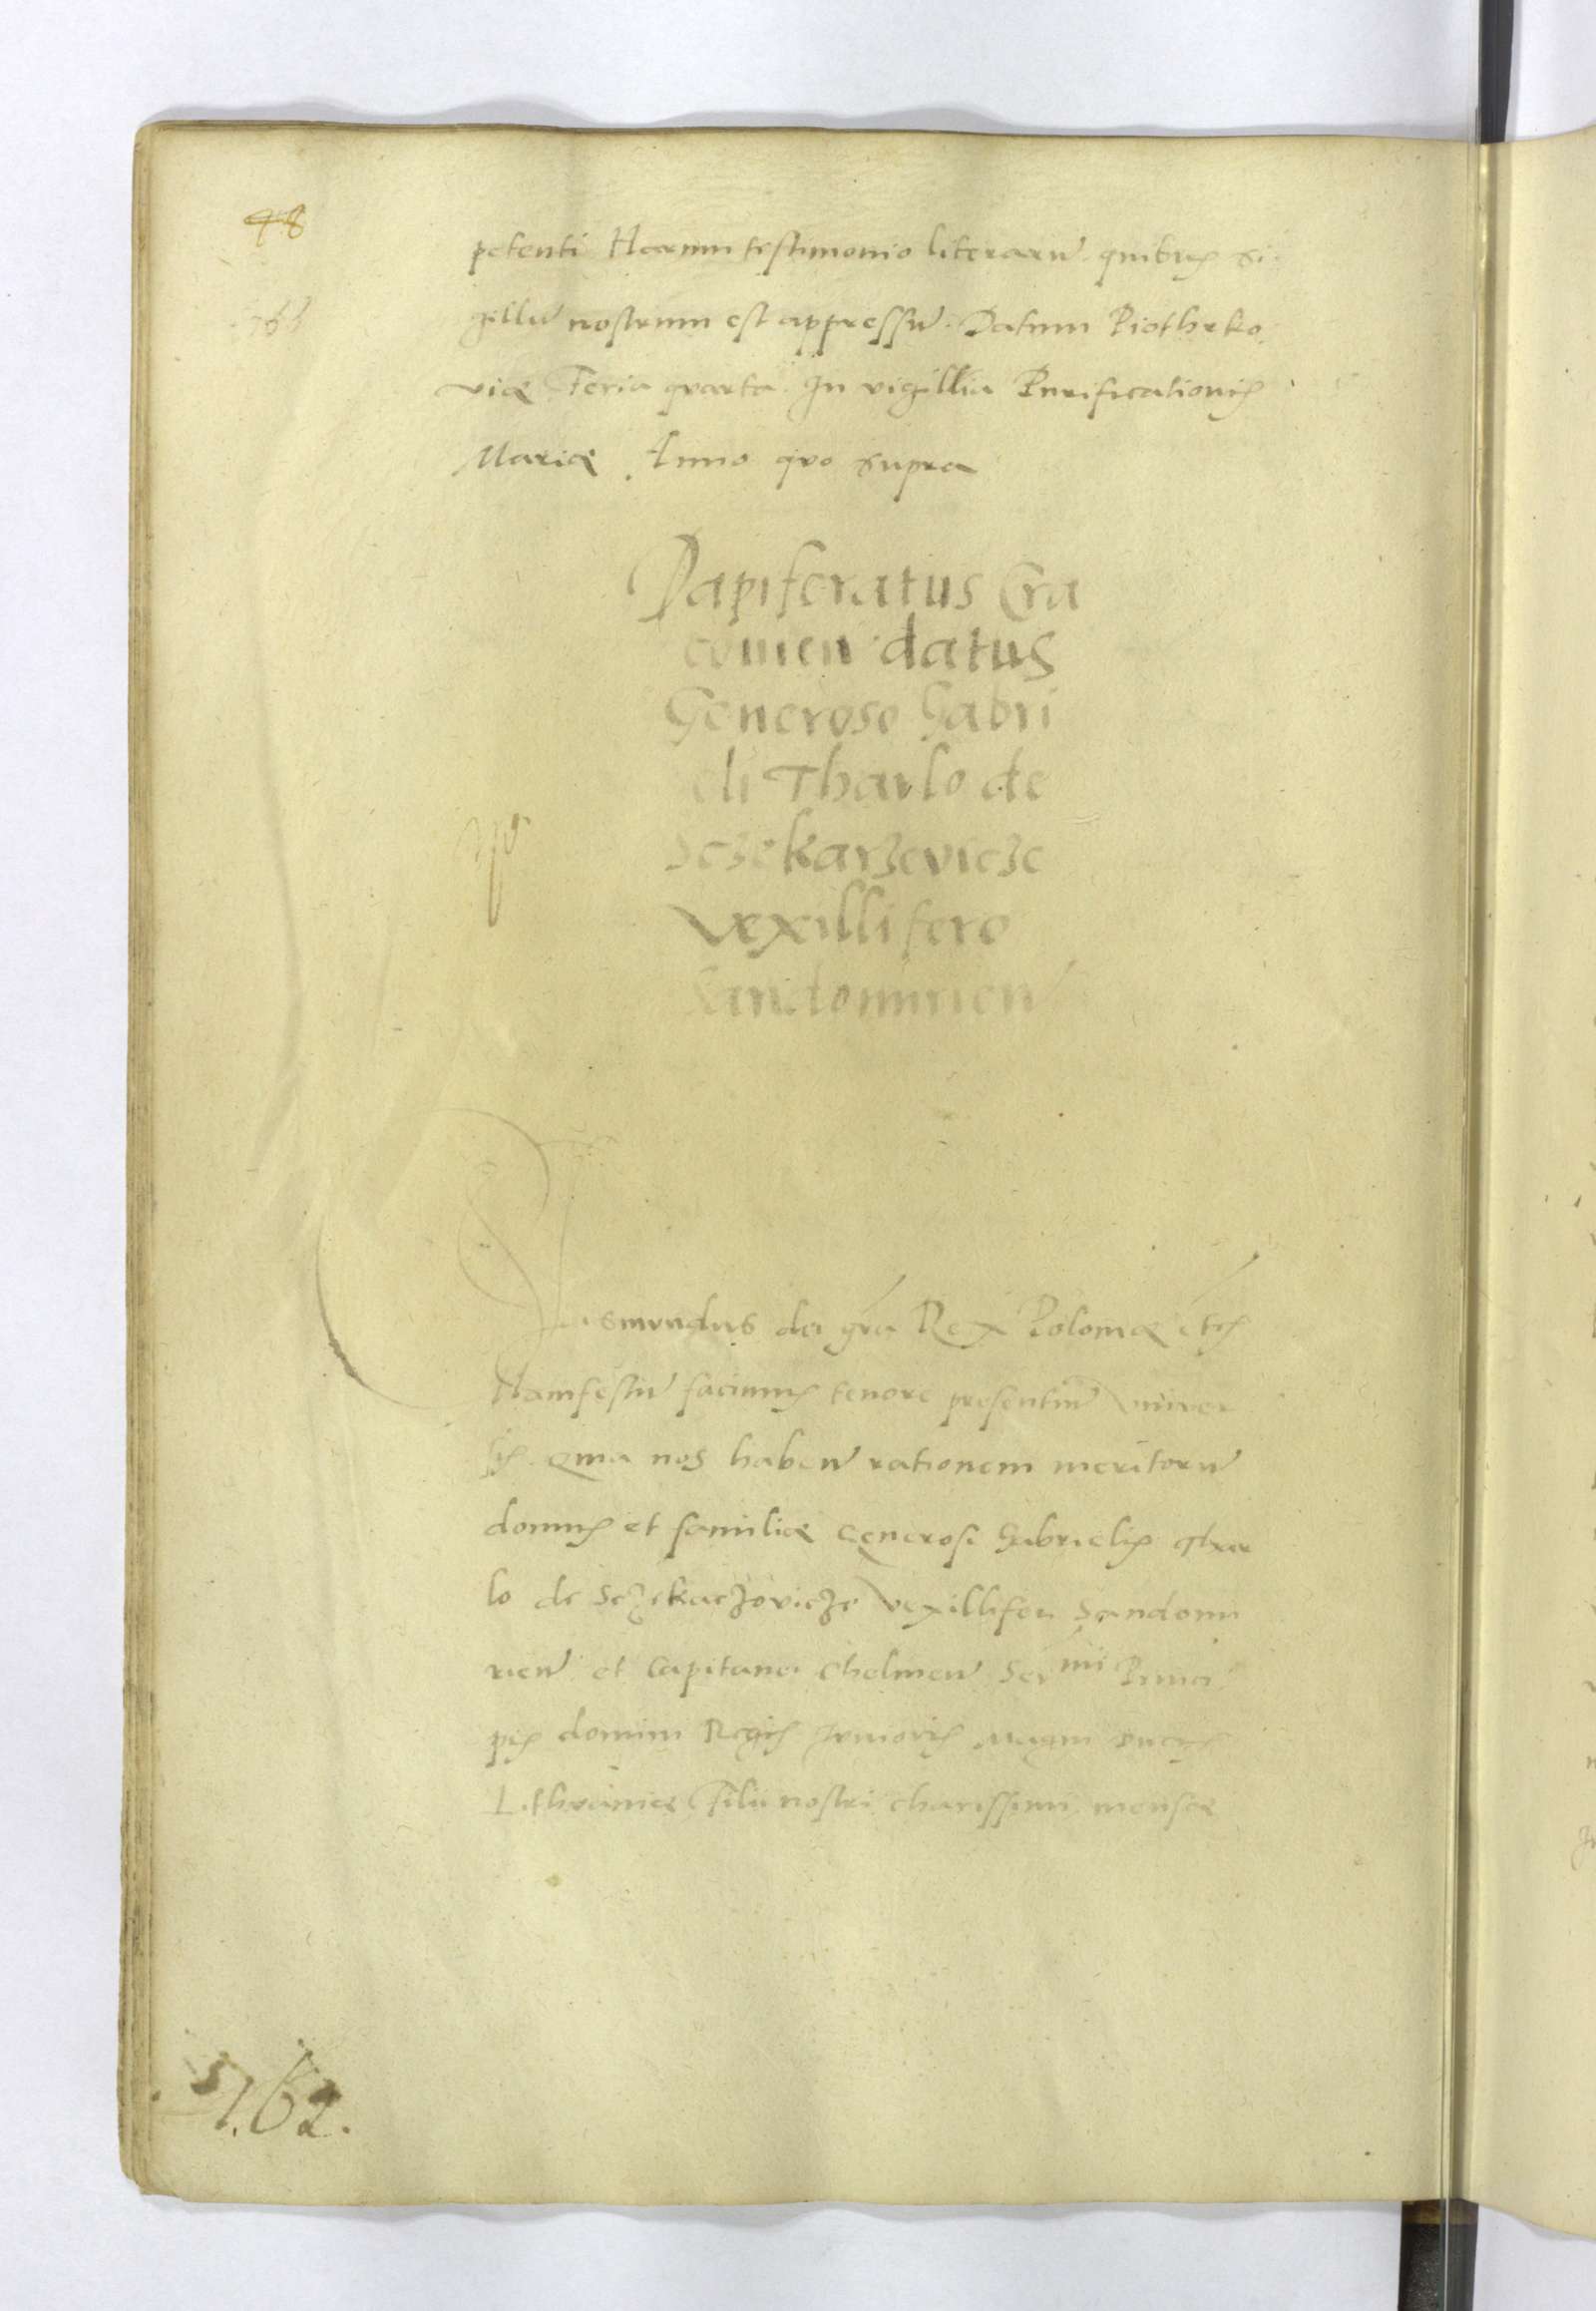 48
petenti Harum testimonio literarū quibus si
gillū nostrum est appressū. Datum Piothrko
viæ Feria quarta In vigillia Purificationis
Mariæ Anno quo supra
Dapiferatus Cra
covien datus
Generoso Gabri
eli Tharlo de
Sczekarzevicze
Vexillifero
Sandomirien
ismundus dei gra Rex Poloniæ etc
Manifestū facimus tenore presentiū univer
sis. Quia nos haben rationem meritorū
domus et familiæ Generosi Gabrielis Thar
lo de Sczekarzovicze Vexilliferi Sandomi
rien et Capitanei Chelmen Sermi Princi
pis domini Regis Junioris Magni Ducis
Lithvaniæ Filii nostri charissimi mensæ
762.